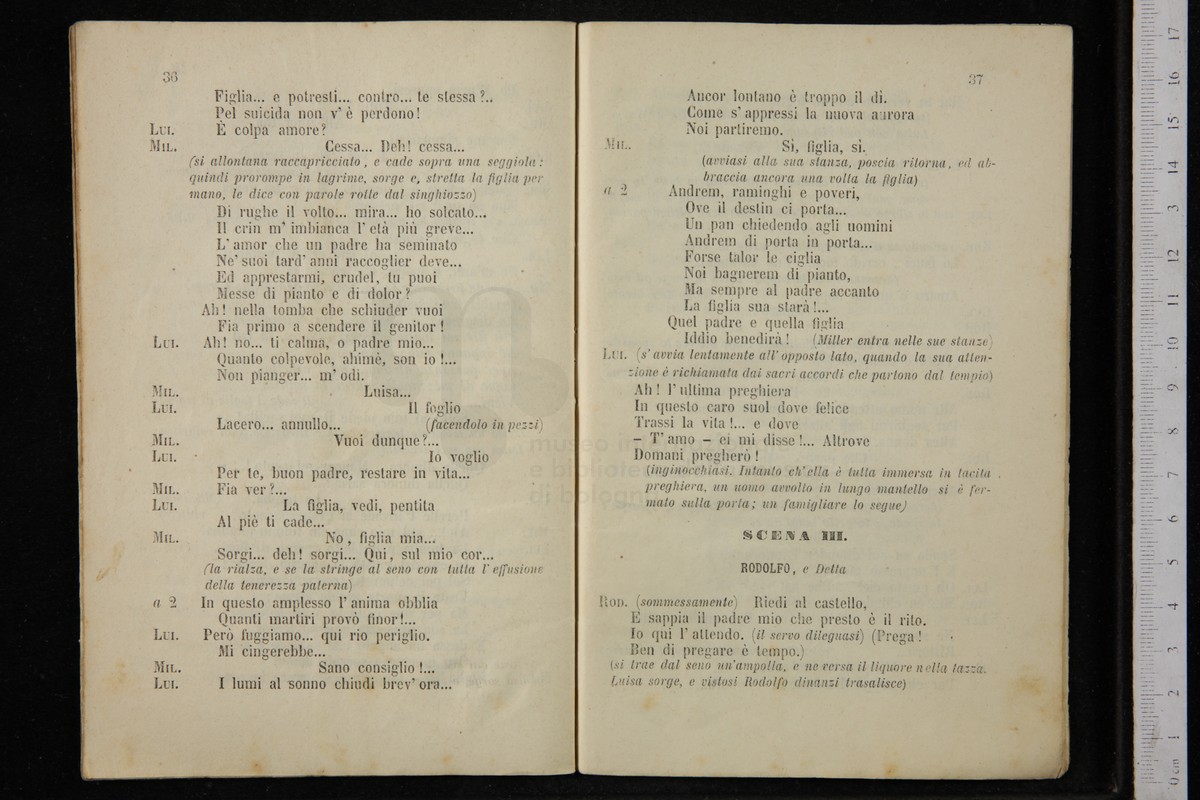 36
Figlia... e potresti... contro... te stessa?..
Pel suicida non v'è perdono!
LUI. È colpa amore?
MIL. Cessa... Deh! cessa...
(si allontana raccapricciato, e cade sopra una seggiola:
quindi prorompe in lagrime, sorge e, stretta la figlia per
mano, le dice con parole rotte dal singhiozzo)
Di rughe il volto... mira... ho solcato...
Il crin m'imbianca l'età più greve...
L'amor che un padre ha seminato
Ne'suoi tard'anni raccoglier deve...
Ed apprestarmi, crudel, tu puoi
Messe di pianto e di dolor?
Ah! nella tomba che schiuder vuoi
Fia primo a scendere il genitor!
LUI. Ah! no... ti calma, o padre mio...
Quanto colpevole, ahimè, son io!...
Non pianger... m'odi.
MIL. Luisa...
LUI. Il foglio
Lacero... annullo... (facendolo in pezzi)
MIL. Vuoi dunque?...
LUI. Io voglio
Per te, buon padre, restare in vita...
MIL. Fia ver?...
LUI. La figlia, vedi, pentita
Al piè ti cade...
MIL. No, figlia mia...
Sorgi... deh! sorgi... Qui, sul mio cor...
(la rialza, e se la stringe al seno con tutta l'effusione
della tenerezza paterna)
a 2 In questo amplesso l'anima obblia
Quanti martiri provò finor!...
LUI. Però fuggiamo... qui rio periglio.
Mi cingerebbe...
MIL. Sano consiglio!...
LUI. I lumi al sonno chiudi brev'ora...
37
Ancor lontano è troppo il dì.
Come s'appressi la nuova aurora
Noi partiremo.
MIL. Sì, figlia, sì.
(avviasi alla sua stanza, poscia ritorna, ed ab-
braccia ancora una volta la figlia)
a 2 Andrem, raminghi e poveri,
Ove il destin ci porta...
Un pan chiedendo agli uomini
Andrem di porta in porta...
Forse talor le ciglia
Noi bagnerem di pianto,
Ma sempre al padre accanto
La figlia sua starà!...
Quel padre e quella figlia
Iddio benedirà! (Miller entra nelle sue stanze)
LUI. (s'avvia lentamente all'opposto lato, quando la sua atten-
zione è richiamata dai sacri accordi che partono dal tempio)
Ah! l'ultima preghiera
In questo caro suol dove felice
Trassi la vita!... e dove
– T'amo – ei mi disse!... Altrove
Domani pregherò!
(inginocchiasi. Intanto ch'ella è tutta immersa in tacita
preghiera, un uomo avvolto in lungo mantello si è fer-
mato sulla porta; un famigliare lo segue)
SCENA III.
RODOLFO, e Detta
ROD. (sommessamente) Riedi al castello,
E sappia il padre mio che presto è il rito.
Io qui l'attendo. (il servo dileguasi) (Prega!
Ben di pregare è tempo.)
(si trae dal seno un'ampolla, e ne versa il liquore nella tazza.
Luisa sorge, e vistosi Rodolfo dinanzi trasalisce)
museo in
e bibliote
di bologn
0 cm 1 2 3 4 5 6 7 8 9 10 11 12 13 14 15 16 17